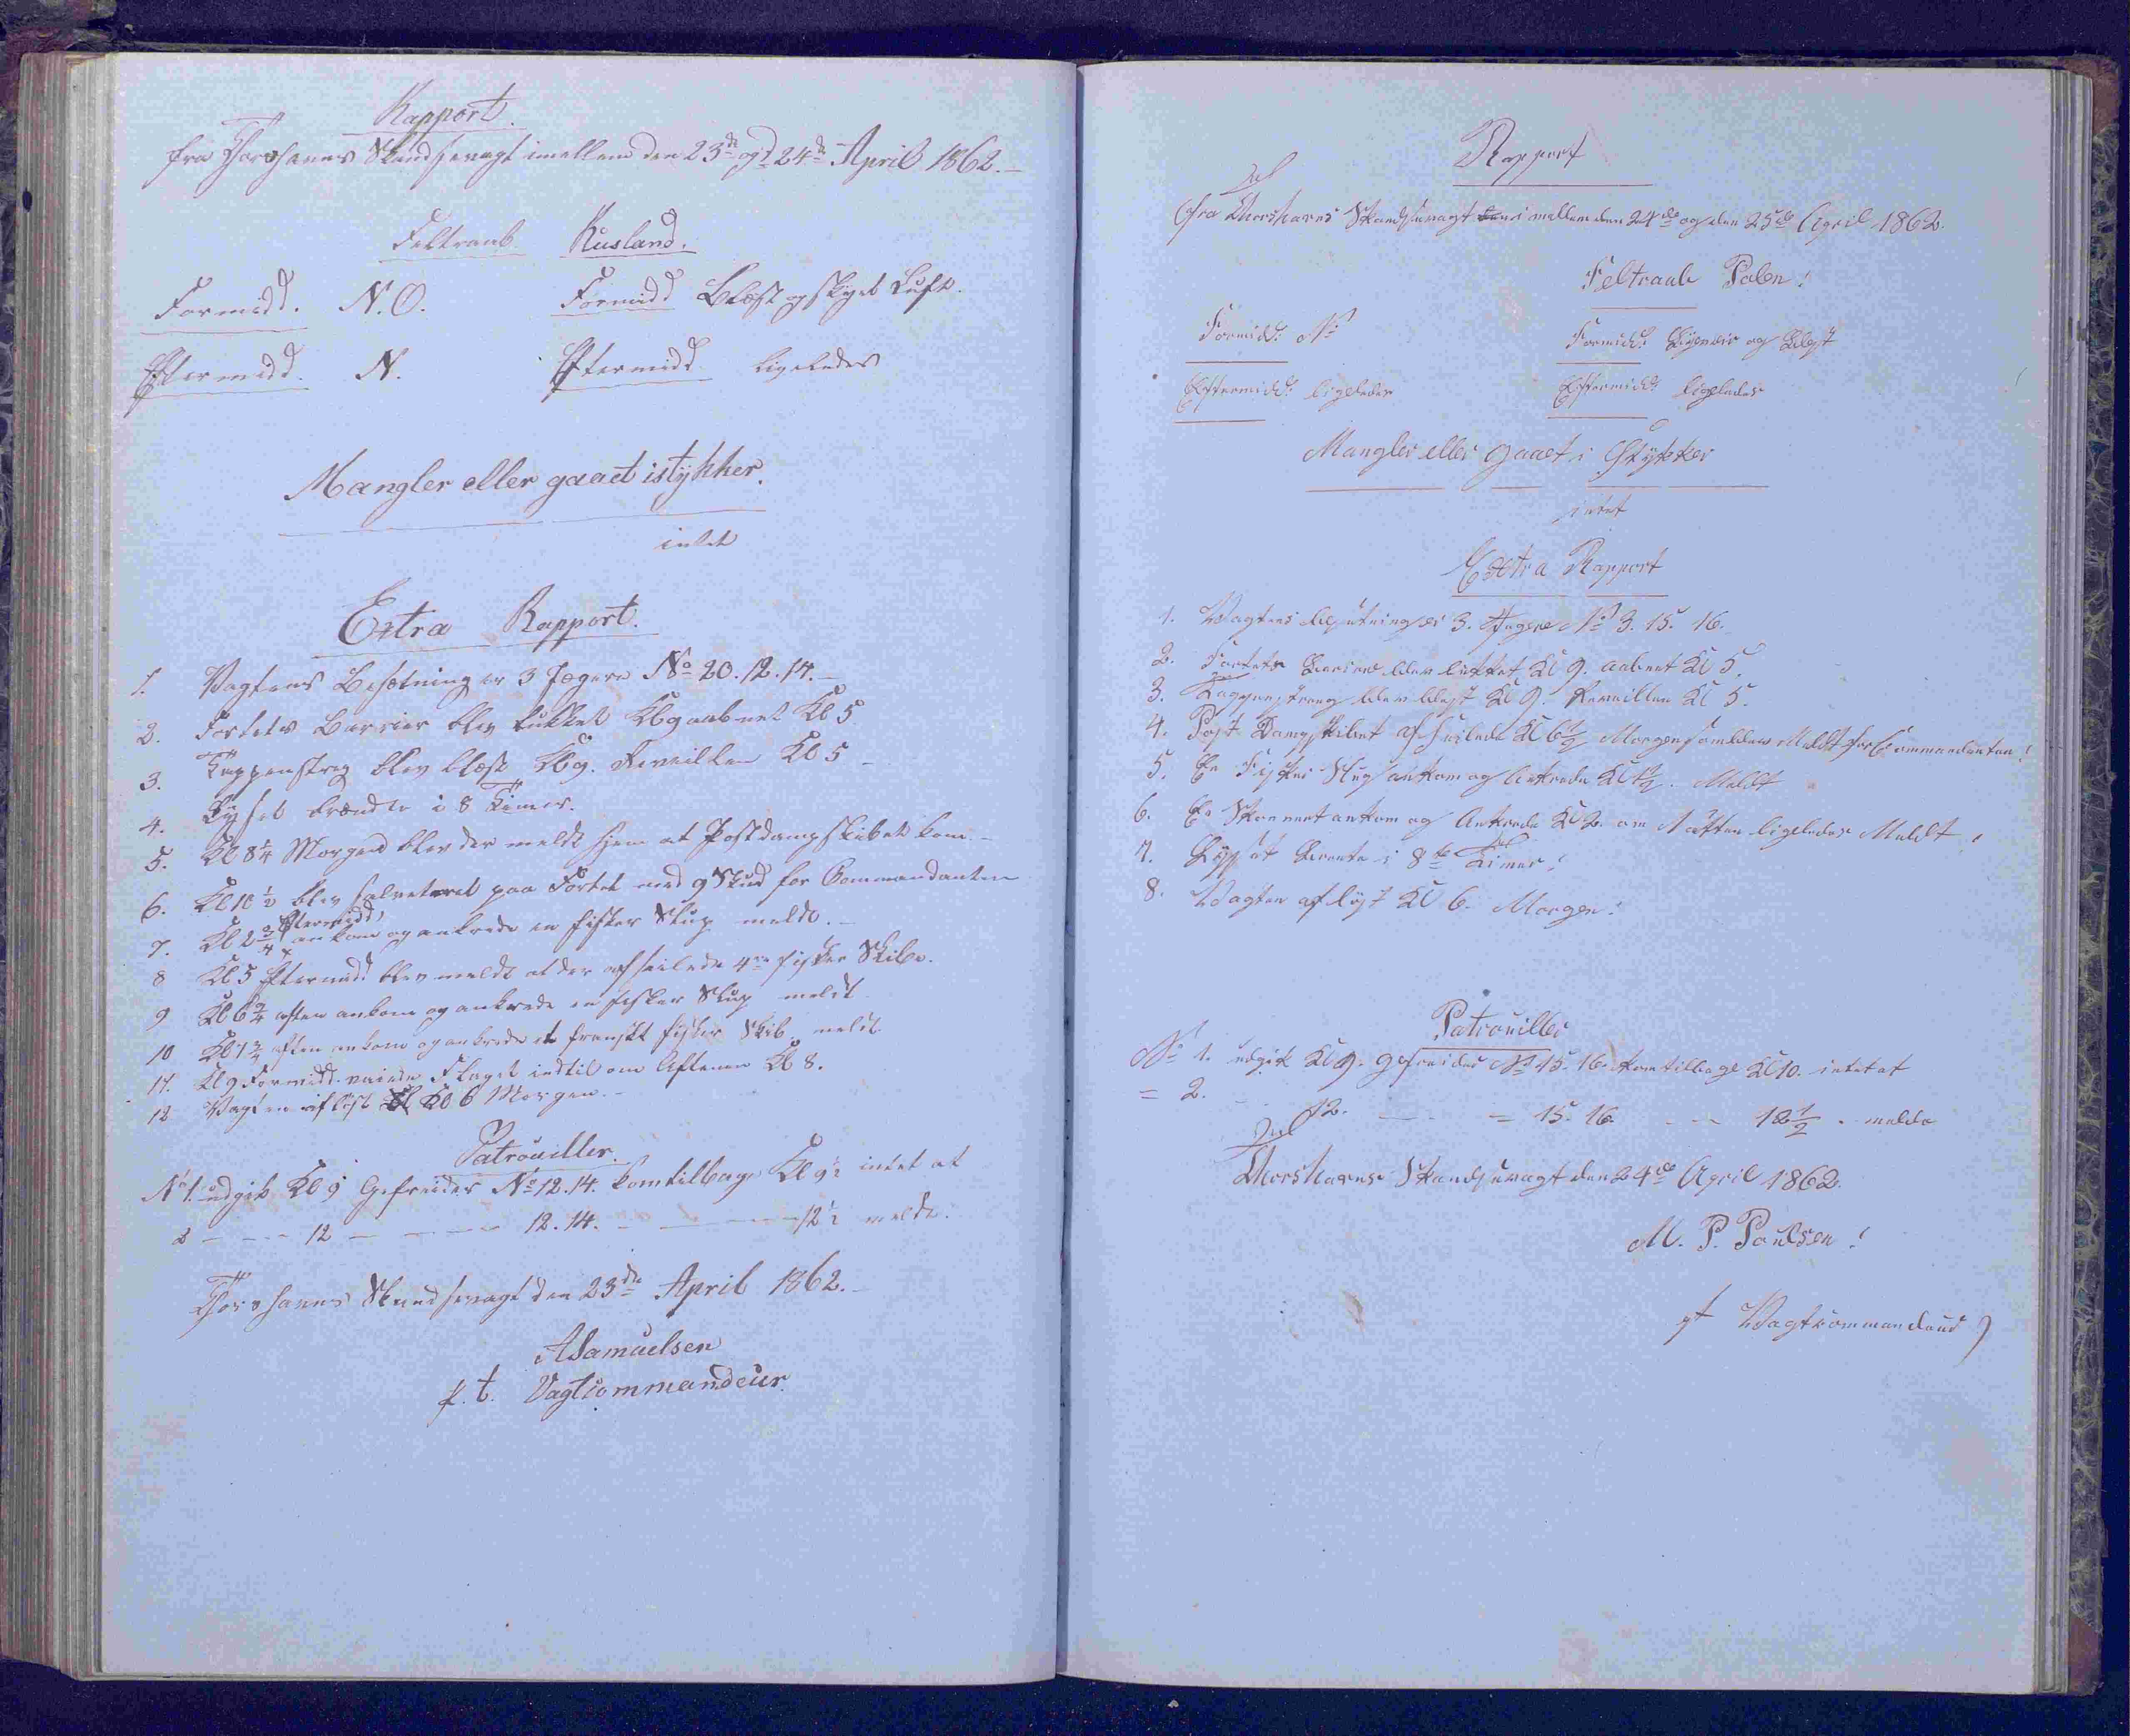 Rapport.
fra Thorshavns Skandsevagt imellem den 23de og 24de April 1862.
Feltraab Rusland.
Formidd. N.O. Formidd Blæst og skyet Luft.
Eftermidd. N. Eftermidd. ligeledes
Mangler eller gaaet istykker.
intet
Extra Rapport.
1. Vagtens Besætning er 3 Jægere No 20. 12. 14.
2. Fortets Barrier blev lukket Kl 9 aabnet Kl 5
3. Tappenstreg blev blæst Kl 9. Reveillen Kl 5
4. Lyset brændte i 8 Timer.
5. Kl 8¼ Morgen blev der meldt hjem at Postdampskibet kom
6. Kl 10½ blev saluteret paa Fortet med 9 Skud for Commandanten
7. Kl 2¾ Eftermidd ankom og ankrede en fisker Slup meldt.
8 Kl 5 Eftermidd blev meldt at der afseilede 4re fisker Skibe.
9 Kl 6¾ aften ankom og ankrede en fisker Slup meldt
10 Kl 7¾ aften ankom og ankrede et fransk fisker Skib meldt
11. Kl 9 Formidd. vaiede Flaget indtil om Aftenen Kl 8.
12 Vagten afløst Kl 6 Morgen.
Patrouiller.
No 1. udgik Kl 9 Gefreider No 12. 14. kom tilbage Kl 9½ intet at
2 - - - 12 - - - 12. 14. - - - 12½ melde.
Thorshavns Skandsevagt den 23de April 1862.
ASamuelsen
p. t. Vagtcommandeur.
Rapport
fra Thorshavns Skandsevagt imellem den 24de og den 25de April 1862.
Feltraab Polen!
Formidd: N: Formidd: Regnveir og Blæst
Eftermidd: ligeledes Eftermidd: ligeledes
Mangler eller gaaet i Stykker
intet
Extra Rapport
1. Vagtens besætning er 3. Jægere No 3. 15. 16.
2. Fortets Barriere blev lukket Kl 9. aabnet Kl 5.
3. Tappenstreng blev blæst Kl 9. Reveillen Kl 5.
4. Post Dampskibet afseilede Kl 6½ Morgen som blev Meldt for Commandanten!
5. En Fisker Slup ankom og Ankrede Kl ½. Meldt
6. En Skonnert ankom og Ankrede Kl 2. om Natten ligeledes Meldt!
7. Lyset brente i 8te Timer!
8. Vagten afløst Kl 6. Morgen!
Patrouiller
No 1. udgik Kl 9. gefreider No 15. 16. kom tilbage Kl 10. intet at
= 2. - 12. - = 15. 16. - - 12½ - melde
Thorshavns Skandsevagt den 24de April 1862.
M. P. Poulsen!
pt Vagtcommandeur